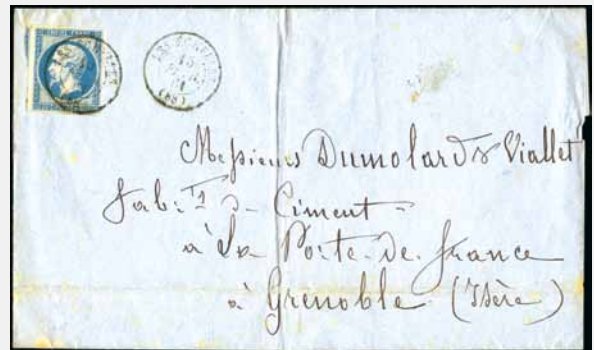 Messieurs Dumolard & Viallet
Fab.ts de Ciment
à La Porte de France
à Grenoble (Isère)